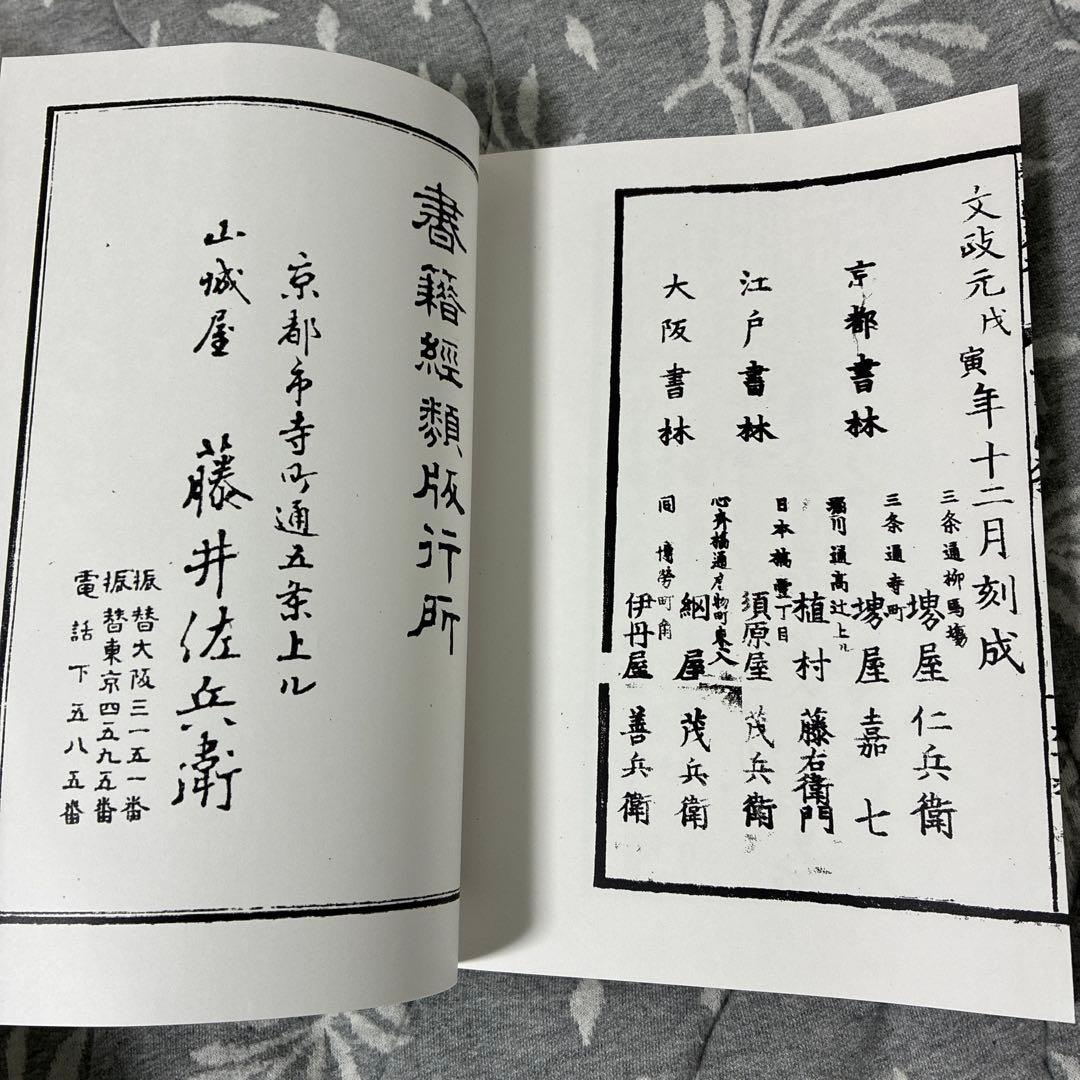 文政元戊寅年十二月刻成
京都書林
三条通柳馬場
堺屋仁兵衛
三条通寺町
堺屋嘉七
堀川通高辻上ル
植村藤右衛門
江戸書林
日本橋壹丁目
須原屋茂兵衛
大阪書林
心斉橋通唐物町東入
綱屋茂兵衛
同博労町角
伊丹屋善兵衛
書籍經類版行所
京都市寺町通五条上ル
山城屋 藤井佐兵衛
振替大阪三一五一番
振替東京四五九五番
電話下五八五番